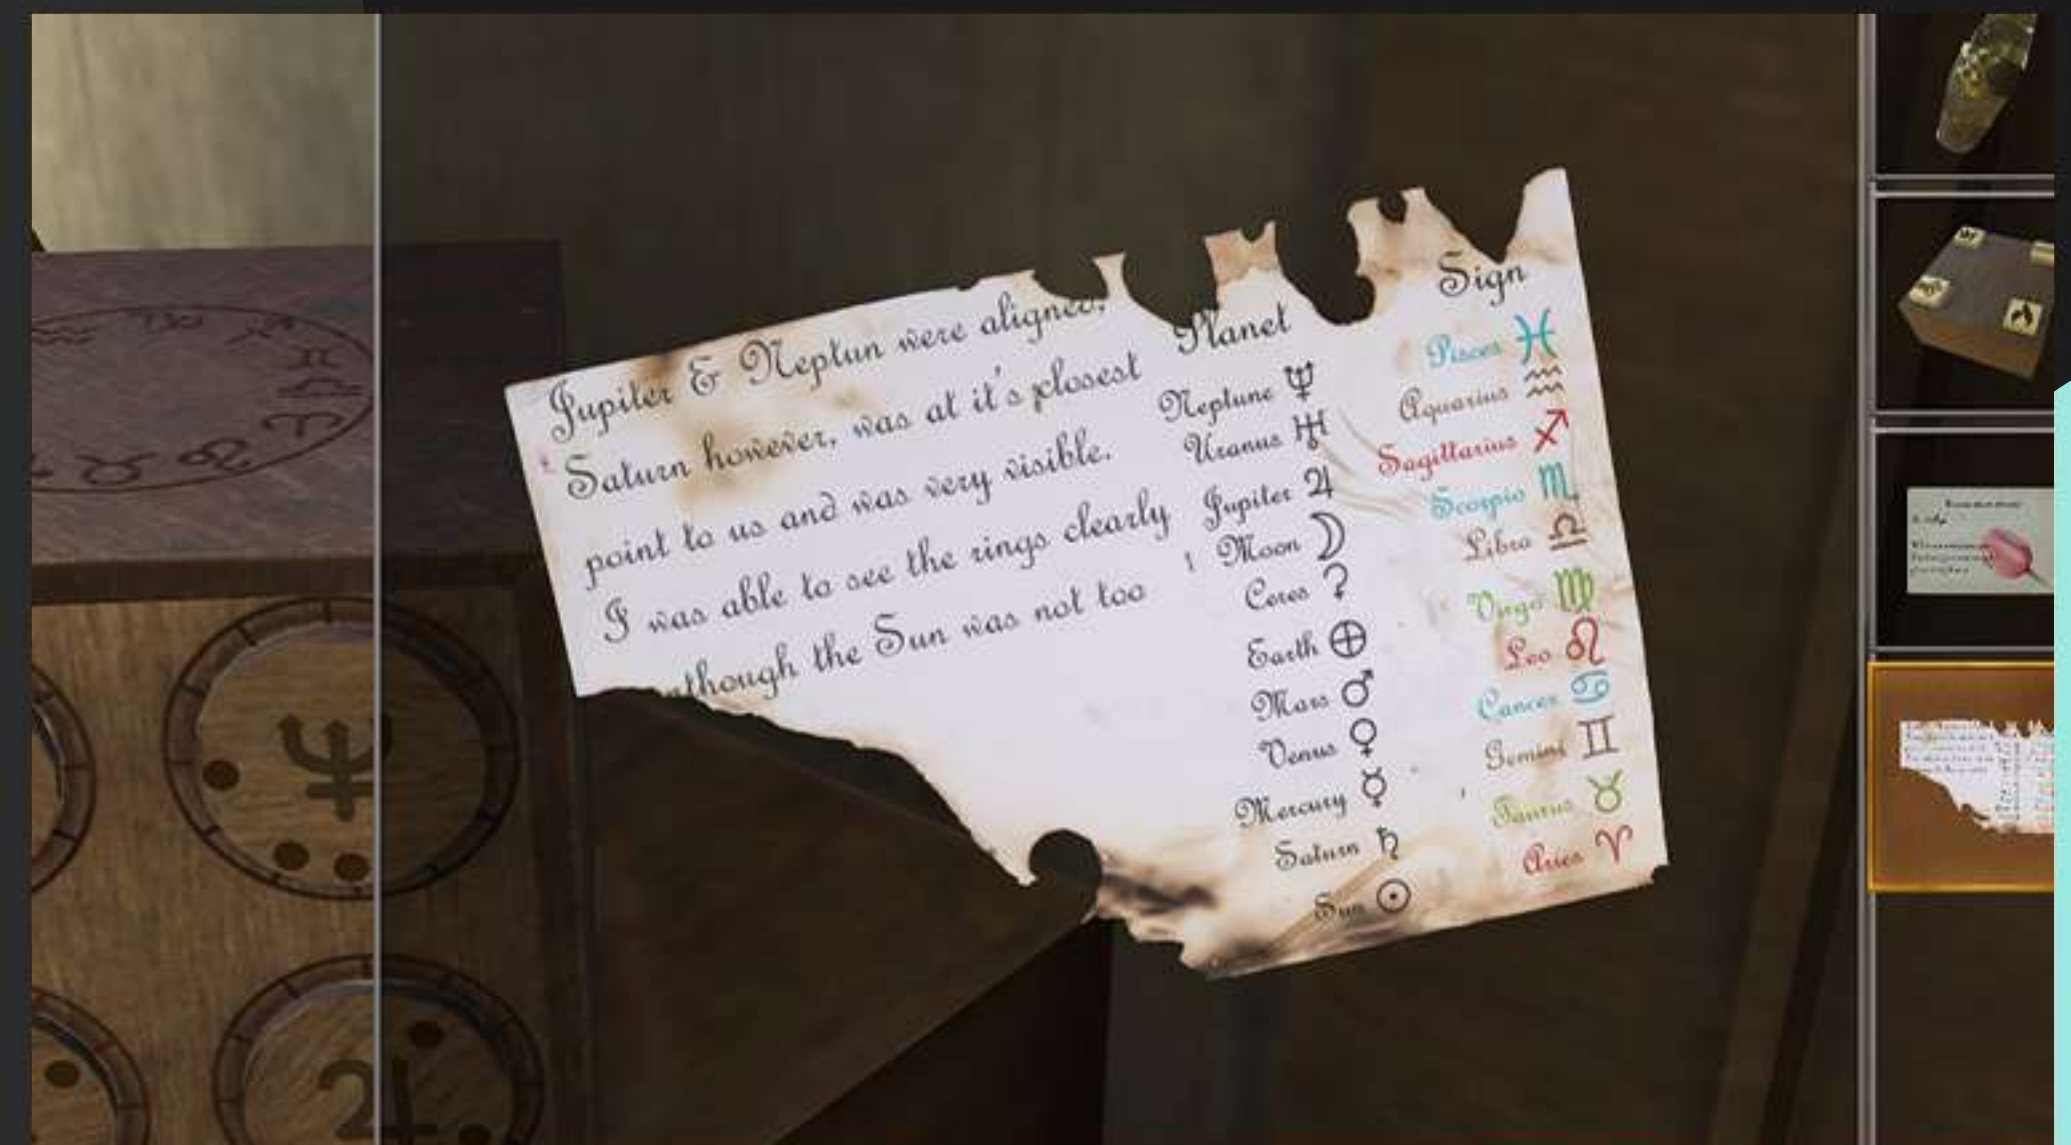 Jupiter & Neptun were aligned,
Saturn however, was at it's closest
point to us and was very visible.
I was able to see the rings clearly
though the Sun was not too
Planet
Neptune ♆
Uranus ♅
Jupiter ♃
Moon ☽
Ceres ⚳
Earth ⊕
Mars ♂
Venus ♀
Mercury ☿
Saturn ♄
Sun ☉
Sign
Pisces ♓
Aquarius ♒
Sagittarius ♐
Scorpio ♏
Libra ♎
Virgo ♍
Leo ♌
Cancer ♋
Gemini ♊
Taurus ♉
Aries ♈